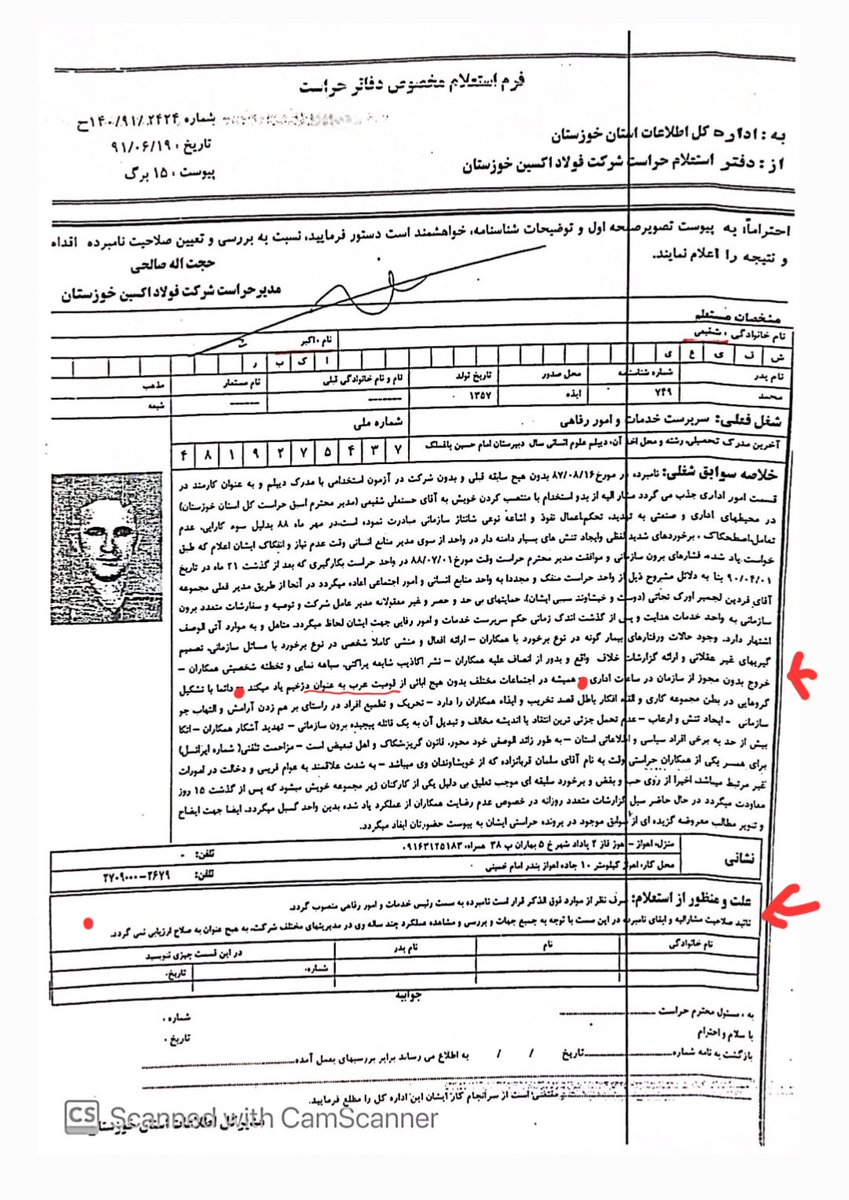 فرم استعلام مخصوص دفاتر حراست
شماره ۱۴۰/۹۱/۰۲۴۲۴ح
به : اداره کل اطلاعات استان خوزستان
تاریخ : ۹۱/۰۶/۱۹
از : دفتر استعلام حراست شرکت فولاد اکسین خوزستان
پیوست : ۱۵ برگ
احتراماً، به پیوست تصویر صفحه اول و توضیحات شناسنامه، خواهشمند است دستور فرمایید، نسبت به بررسی و تعیین صلاحیت نامبرده اقدام
و نتیجه را اعلام نمایند.
حجت اله صالحی
مدیر حراست شرکت فولاد اکسین خوزستان
مشخصات مستعلم
نام خانوادگی : شفیعی
نام : اکبر
ش ف ی ع ی
ا ک ب ر
نام پدر شماره شناسنامه محل صدور تاریخ تولد نام و نام خانوادگی قبلی نام مستعار مذهب
محمد ۷۴۹ ایذه ۱۳۵۷ ------- ------- شیعه
شغل فعلی: سرپرست خدمات و امور رفاهی
شماره ملی
آخرین مدرک تحصیلی، رشته و محل اخذ آن: دیپلم علوم انسانی سال دبیرستان امام حسین باغملک
۴ ۸ ۱ ۹ ۲ ۷ ۵ ۴ ۳ ۷
خلاصه سوابق شغلی: نامبرده در مورخ ۸۷/۰۸/۱۶ بدون هیچ سابقه قبلی و بدون شرکت در آزمون استخدامی با مدرک دیپلم و به عنوان کارمند در
قسمت امور اداری جذب می گردد مشار الیه از بدو استخدام با منتصب کردن خویش به آقای حسنعلی شفیعی (مدیر محترم اسبق حراست کل استان خوزستان)
در محیطهای اداری و صنعتی به تهدید، تحکم، اعمال نفوذ و اشاعه نوعی شانتاژ سازمانی مبادرت نموده است. در مهر ماه ۸۸ بدلیل سوء کارایی، عدم
تعامل، اصطحکاک ، برخوردهای شدید لفظی وایجاد تنش های بسیار دامنه دار در واحد از سوی مدیر منابع انسانی وقت عدم نیاز و انفکاک ایشان اعلام که طبق
خواست یاد شده، فشارهای برون سازمانی و موافقت مدیر محترم حراست وقت مورخ ۸۸/۰۷/۰۱ در واحد حراست بکارگیری که بعد از گذشت ۲۱ ماه در تاریخ
۹۰/۰۴/۰۱ بنا به دلائل مشروح ذیل از واحد حراست منفک و مجددا به واحد منابع انسانی و امور اجتماعی اعاده میگردد در آنجا از طریق مدیر فعلی مجموعه
آقای فردین لجمیر اورک نجاتی (دوست و خیشاوند سببی ایشان)، حمایتهای بی حد و حصر و غیر معقولانه مدیر عامل شرکت و توصیه و سفارشات متعدد برون
سازمانی به واحد خدمات هدایت و پس از گذشت اندک زمانی حکم سرپرست خدمات و امور رفاهی جهت ایشان لحاظ میگردد. متاهل و به موارد آتی الوصف
اشتهار دارد. وجود حالات ورفتارهای بیمار گونه در نوع برخورد با همکاران – ارائه افعال و منشی کاملا شخصی در نوع برخورد با مسائل سازمانی، تصمیم
گیریهای غیر عقلانی و ارائه گزارشات خلاف واقع و بدور از انصاف علیه همکاران – نشر اکاذیب شایعه پراکنی، سیاهه نمایی و تخطئه شخصیتی همکاران –
خروج بدون مجوز از سازمان در ساعت اداری – همیشه در اجتماعات مختلف بدون هیچ ابائی از قومیت عرب به عنوان دژخیم یاد میکند – دائما با تشکیل
گروهایی در بطن مجموعه کاری و القاء افکار باطل قصد تخریب و ایذاء همکاران را دارد – تحریک و تطمیع افراد در راستای بر هم زدن آرامش و التهاب جو
سازمانی – ایجاد تنش و ارعاب – عدم تحمل جزئی ترین انتقاد یا اندیشه مخالف و تبدیل آن به یک قائله پیچیده برون سازمانی – تهدید آشکار همکاران – اتکا
بیش از حد به برخی افراد سیاسی و اطلاعاتی استان – به طور زائد الوصفی خود محور، قانون گریز، شکاک و اهل تبعیض است – مزاحمت تلفنی( شماره ایرانسل)
برای همسر یکی از همکاران حراستی وقت به نام آقای سلمان قربانزاده که از خویشاوندان وی میباشد – به شدت علاقمند به عوام فریبی و دخالت در امورات
غیر مرتبط میباشد، اخیرا از روی حب و بغض و برخورد سلیقه ای موجب تعلیق بی دلیل یکی از کارکنان زیر مجموعه خویش میشود که پس از گذشت ۱۵ روز
معاودت میگردد در حال حاضر سیل گزارشات متعدد روزانه در خصوص عدم رضایت همکاران از عملکرد یاد شده بدین واحد گسیل میگردد. ایضا جهت ایضاح
و تنویر مطالب معروضه گزیده ای از سوابق موجود در پرونده حراستی ایشان به پیوست حضورتان ایفاد میگردد.
نشانی
منزل: اهواز – فاز ۲ پاداد شهر خ ۵ بهاران پ ۲۸ همراه: ۰۹۱۶۳۱۲۵۱۸۳ تلفن: -
محل کار: اهواز کیلومتر ۱۰ جاده اهواز بندر امام خمینی تلفن: ۲۶۷۹-۲۷۰۹۰۰۰
علت و منظور از استعلام: صرف نظر از موارد فوق الذکر قرار است نامبرده به سمت رئیس خدمات و امور رفاهی منصوب گردد.
تائید صلاحیت مشارالیه و ابقای نامبرده در این سمت با توجه به جمیع جهات و بررسی و مشاهده عملکرد چند ساله وی در مدیریتهای مختلف شرکت، به هیچ عنوان به صلاح ارزیابی نمی گردد.
نام خانوادگی نام نام پدر در این قسمت چیزی ننویسید
شماره: تاریخ:
جوابیه
به : مسئول محترم حراست
شماره :
با سلام و احترام
تاریخ :
بازگشت به نامه شماره تاریخ / / به اطلاع می رساند برابر بررسیهای بعمل آمده
و مقتضی است از سرانجام کار ایشان این اداره کل را مطلع فرمایید.
مدیر کل اطلاعات استان خوزستان
CS Scanned with CamScanner